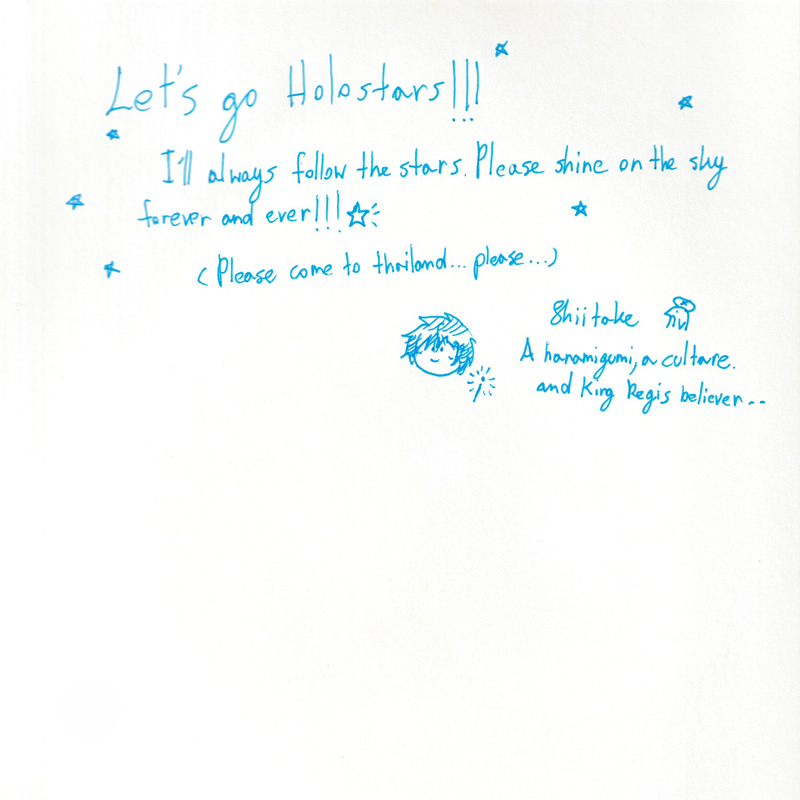 Let's go Holostars!!!
I'll always follow the stars. Please shine on the sky
forever and ever!!!
(Please come to thailand... please...)
Shiitake
A hanamigumi, a culture.
and King Regis believer..